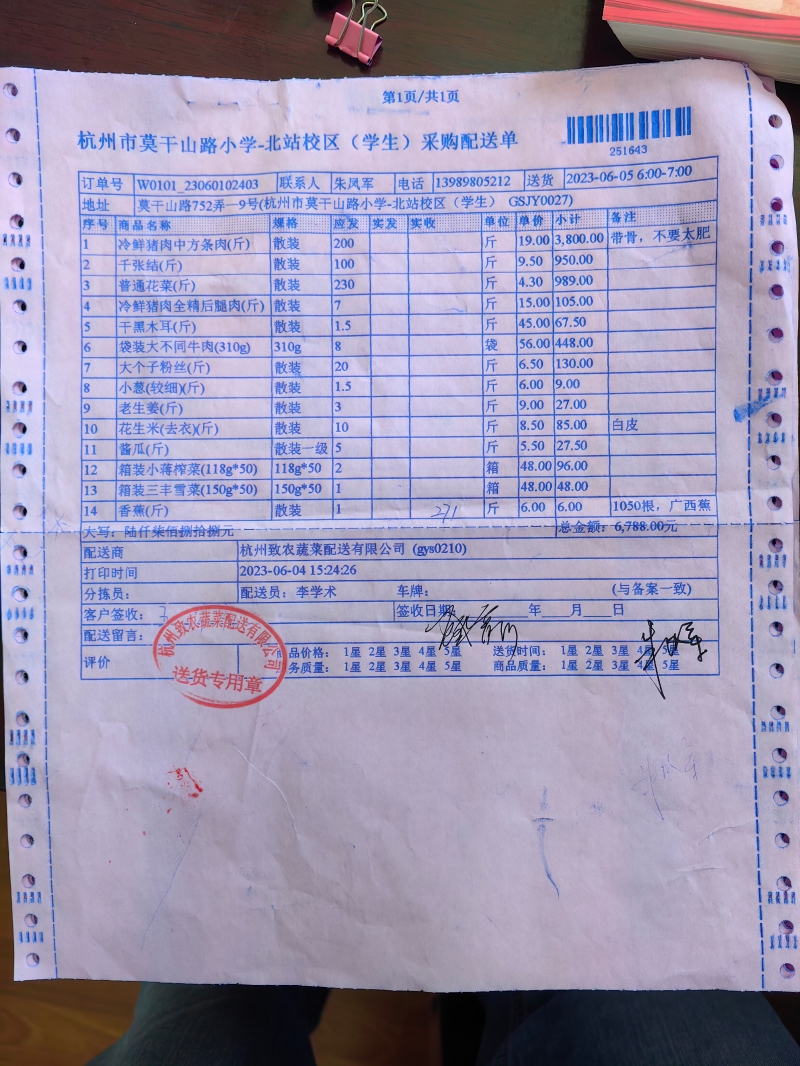 第1页/共1页
杭州市莫干山路小学-北站校区（学生）采购配送单
251643
订单号 W0101_23060102403 联系人 朱凤军 电话 13989805212 送货 2023-06-05 6:00-7:00
地址 莫干山路752弄—9号(杭州市莫干山路小学-北站校区（学生） GSJY0027)
序号 商品名称 规格 应发 实发 实收 单位 单价 小计 备注
1 冷鲜猪肉中方条肉(斤) 散装 200 斤 19.00 3,800.00 带骨，不要太肥
2 千张结(斤) 散装 100 斤 9.50 950.00
3 普通花菜(斤) 散装 230 斤 4.30 989.00
4 冷鲜猪肉全精后腿肉(斤) 散装 7 斤 15.00 105.00
5 干黑木耳(斤) 散装 1.5 斤 45.00 67.50
6 袋装大不同牛肉(310g) 310g 8 袋 56.00 448.00
7 大个子粉丝(斤) 散装 20 斤 6.50 130.00
8 小葱(较细)(斤) 散装 1.5 斤 6.00 9.00
9 老生姜(斤) 散装 3 斤 9.00 27.00
10 花生米(去衣)(斤) 散装 10 斤 8.50 85.00 白皮
11 酱瓜(斤) 散装一级 5 斤 5.50 27.50
12 箱装小蒋榨菜(118g*50) 118g*50 2 箱 48.00 96.00
13 箱装三丰雪菜(150g*50) 150g*50 1 箱 48.00 48.00
14 香蕉(斤) 散装 1 271 斤 6.00 6.00 1050根，广西蕉
大写：陆仟柒佰捌拾捌元 总金额：6,788.00元
配送商 杭州致农蔬菜配送有限公司 (gys0210)
打印时间 2023-06-04 15:24:26
分拣员： 配送员：李学术 车牌： (与备案一致)
客户签收： 签收日期 年 月 日
配送留言：
评价 品价格： 1星 2星 3星 4星 5星 送货时间： 1星 2星 3星 4星 5星
务质量： 1星 2星 3星 4星 5星 商品质量： 1星 2星 3星 4星 5星
杭州致农蔬菜配送有限公司
送货专用章